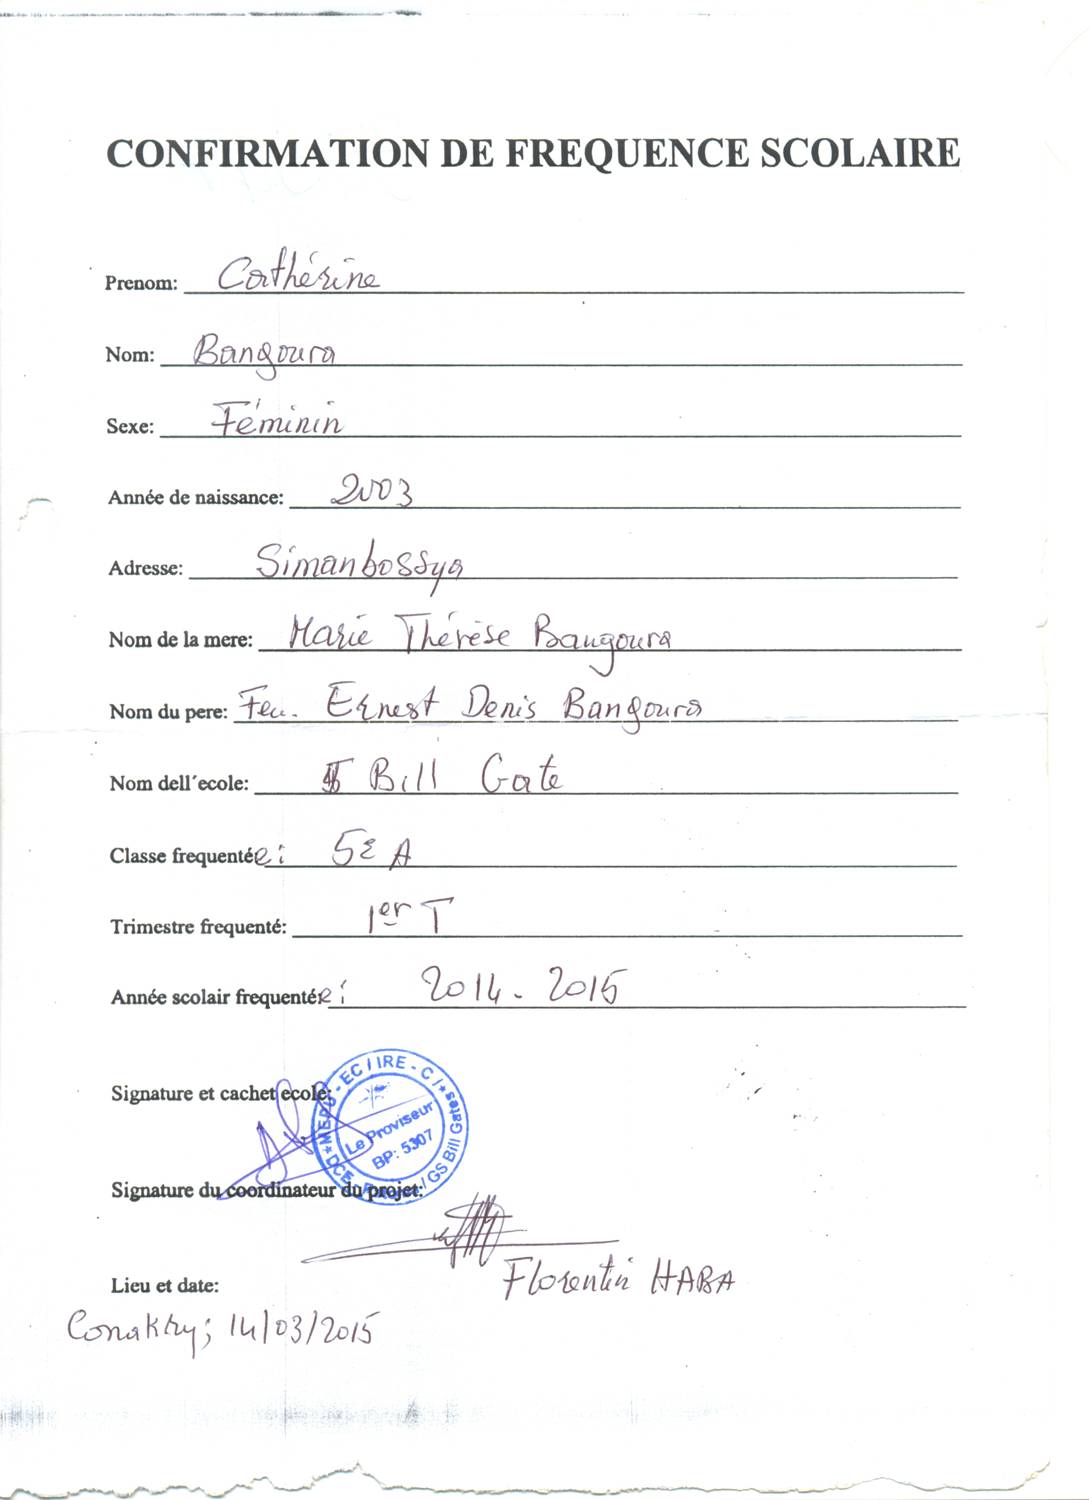 CONFIRMATION DE FREQUENCE SCOLAIRE
Prenom: Cathérine
Nom: Bangoura
Sexe: Féminin
Année de naissance: 2003
Adresse: Simanbossya
Nom de la mere: Marie Thérèse Bangoura
Nom du pere: Feu. Ernest Denis Bangoura
Nom dell´ecole: Bill Gate
Classe frequentée: 5è A
Trimestre frequenté: 1er T
Année scolair frequentée: 2014 - 2015
Signature et cachet ecole:
MEPU - EC / IRE - C /
Le Proviseur
BP: 5307
DCE - / GS Bill Gates
Signature du coordinateur du projet:
Florentin HABA
Lieu et date:
Conakry; 14/03/2015